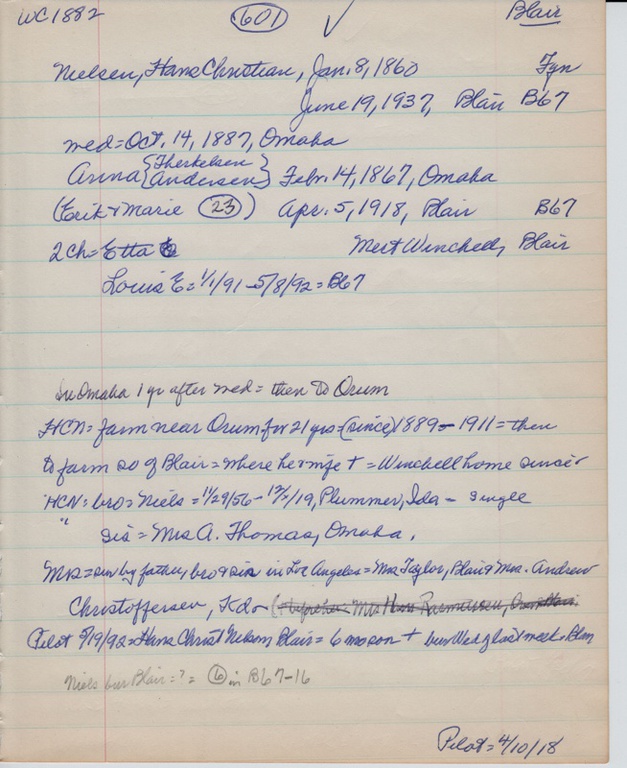 WC1882 601 ✓ Blair
Nielsen, Hans Christian, Jan. 8, 1860 Fyn
June 19, 1937, Blair B67
med = Oct. 14, 1887, Omaha
Anna { Therkelsen
Andersen } Febr. 14, 1867, Omaha
(Erik & Marie 23) Apr. 5, 1918, Blair B67
2 Ch = Etta Mert Winchell, Blair
Louis E = 1/1/91 - 5/8/92 = B67
In Omaha 1 yr after med = then to Orum
HCN = farm near Orum for 21 yrs = (since) 1889 - 1911 = then
to farm so of Blair = where he & wife + = Winchell home since
HCN = bro = Niels = 11/29/56 - 12/1/19, Plummer, Ida - single
" sis = Mrs A. Thomas, Omaha.
Mrs = sur by father, bro & sis in Los Angeles = Mrs Taylor, Blair & Mrs. Andrew
Christoffersen, Kd
Pilot 5/19/92 = Hans Christ Nielsen Blair = 6 mo son + bur Wed of last week = Blm
Niels bur Blair = ? = 6 in B67-16
Pilot = 4/10/18